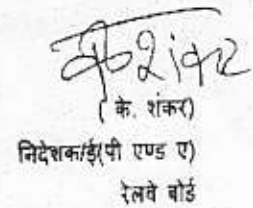 के. शंकर
( के. शंकर)
निदेशक/ई(पी एण्ड ए)
रेलवे बोर्ड